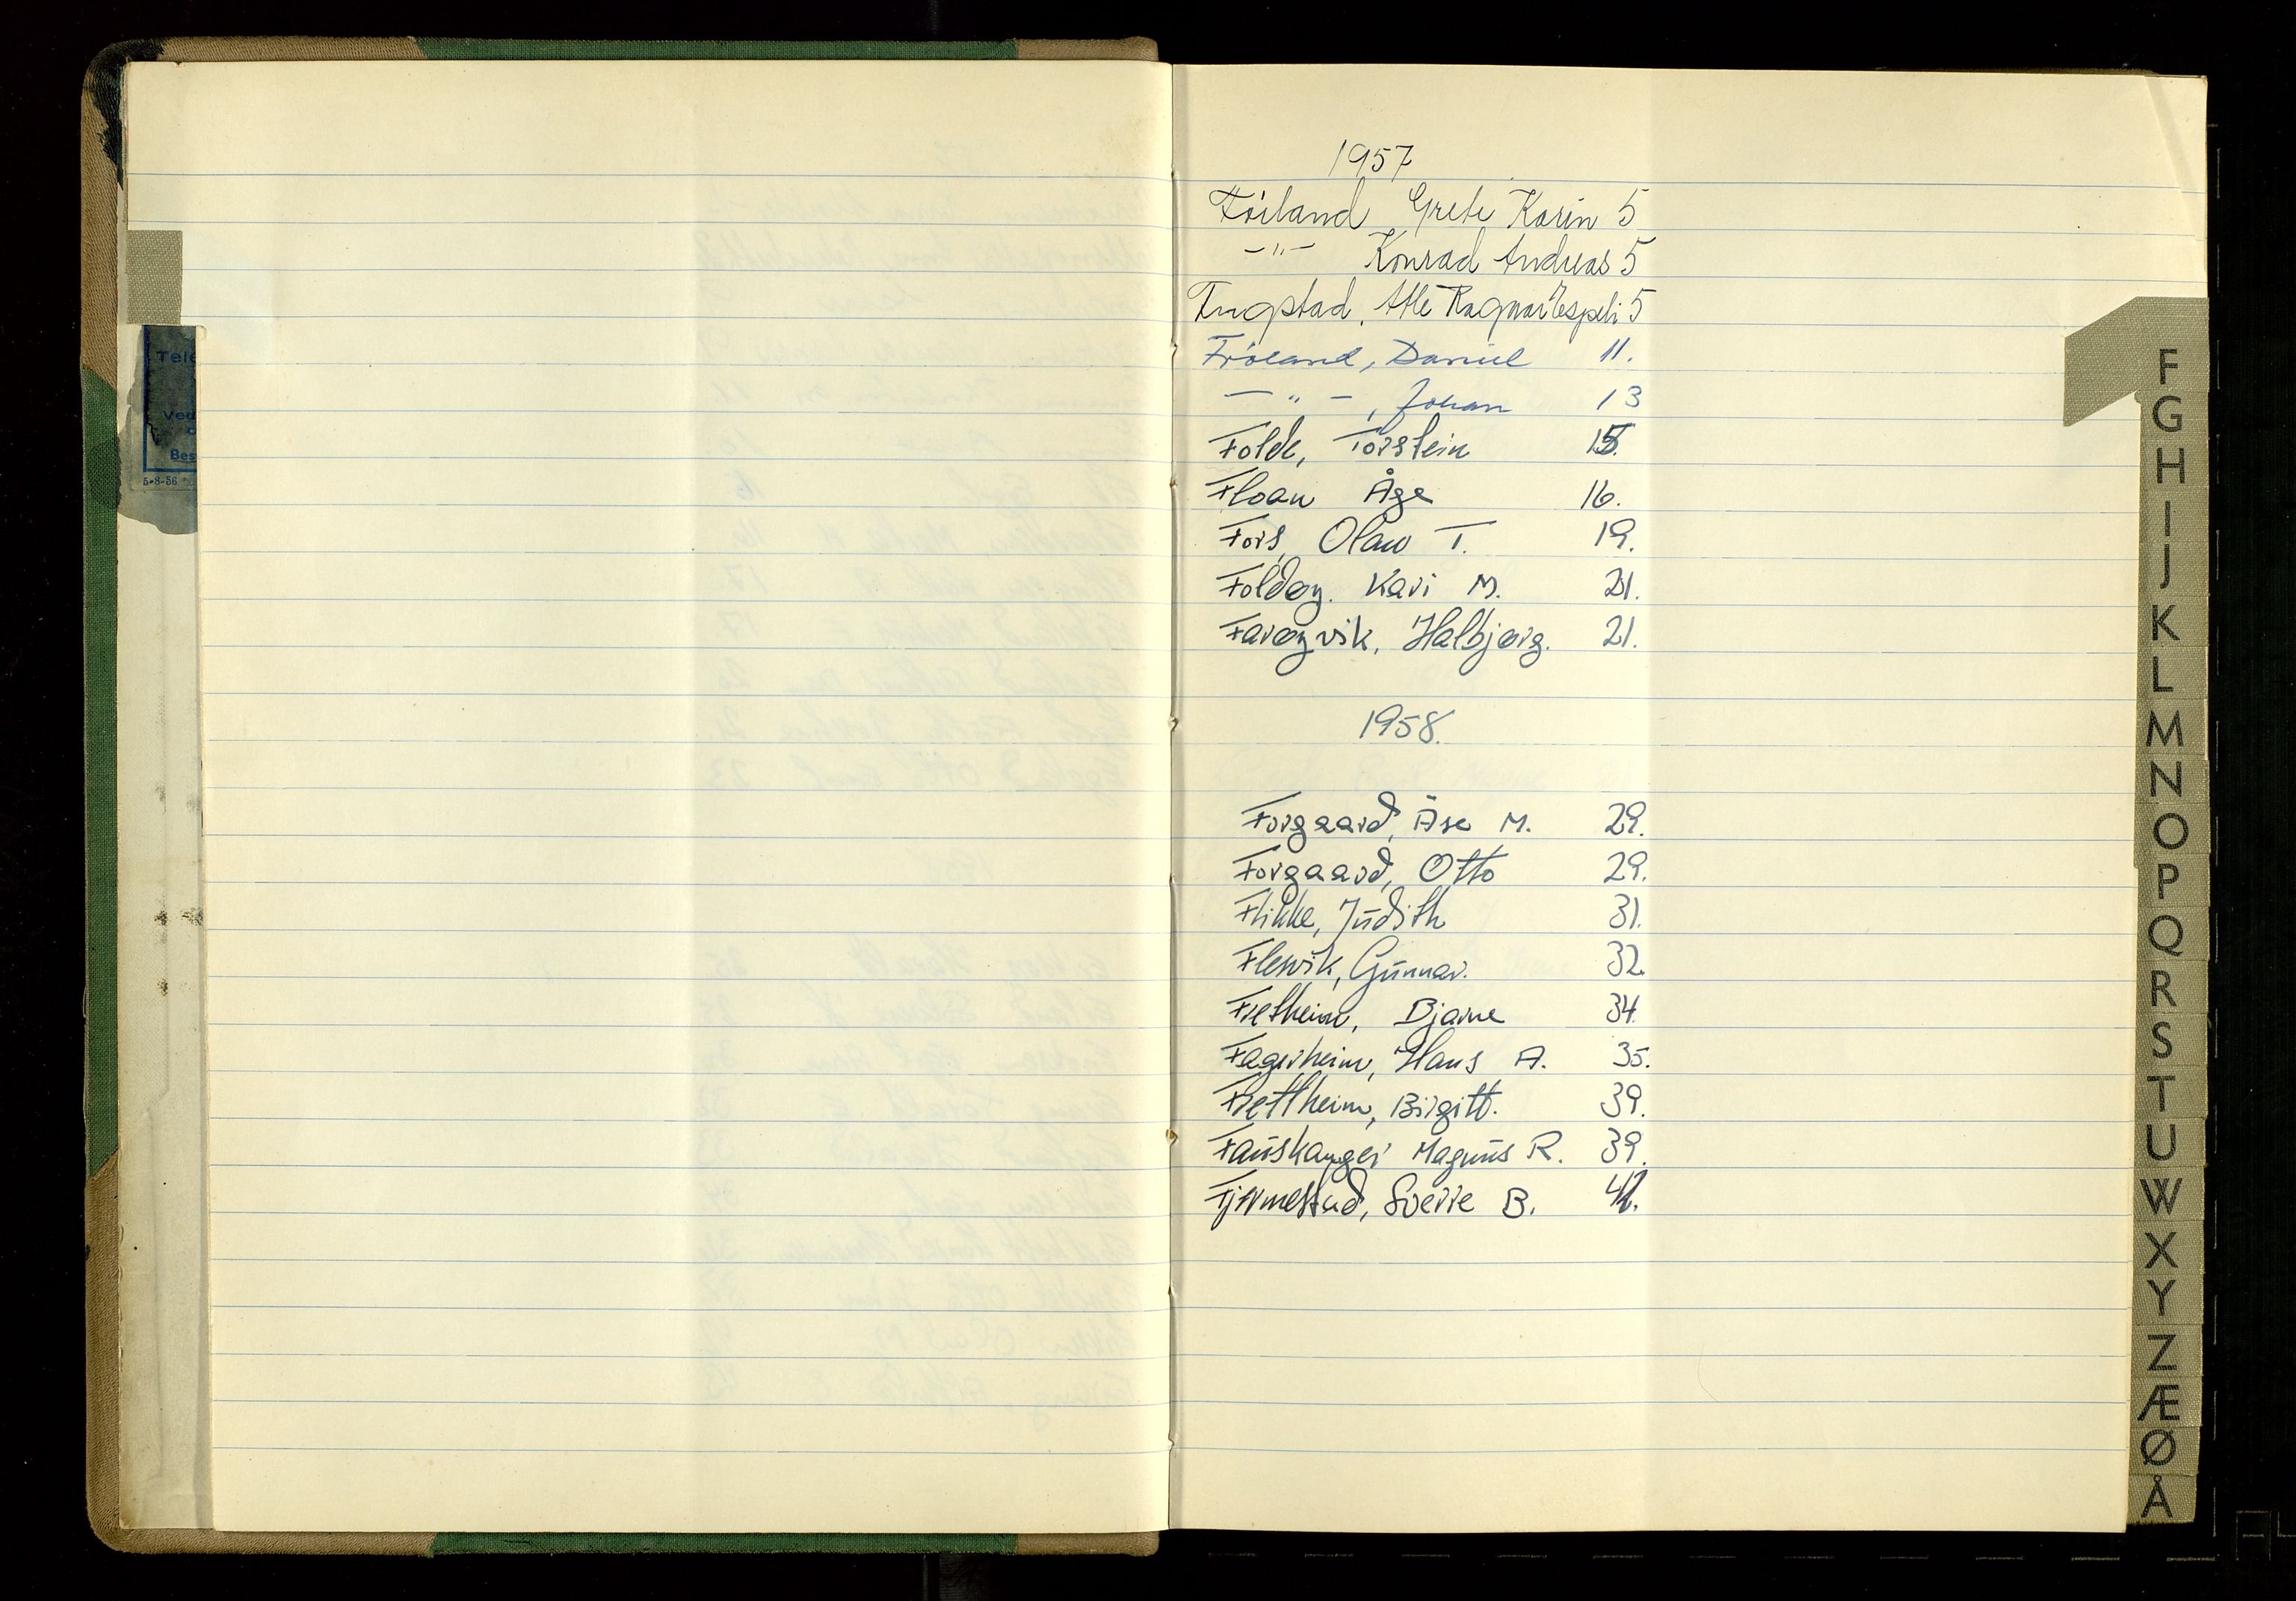 Tele
Ved
Bes
5-8-56
1957
Föiland Grete Karin 5
-"- Konrad Andreas 5
Fugstad, Atle Ragnar Espeli 5
Fröland, Daniel 11.
- " - , Johan 13
Folde, Torstein 15.
Floan Åge 16.
Fors, Olaw T. 19.
Foldøy. Kari M. 21.
Farøyvik, Halbjørg. 21.
1958.
Forgaard, Åse M. 29.
Forgaard, Otto 29.
Flikke, Judith 31.
Flesvik, Gunnar. 32.
Fretheim, Bjarne 34.
Fagerheim, Hans A. 35.
Frettheim, Birgitt. 39.
Fauskanger Magnus R. 39.
Fjermestad, Sverre B. 42.
F
G
H
I
J
K
L
M
N
O
P
Q
R
S
T
U
W
X
Y
Z
Æ
Ø
Å